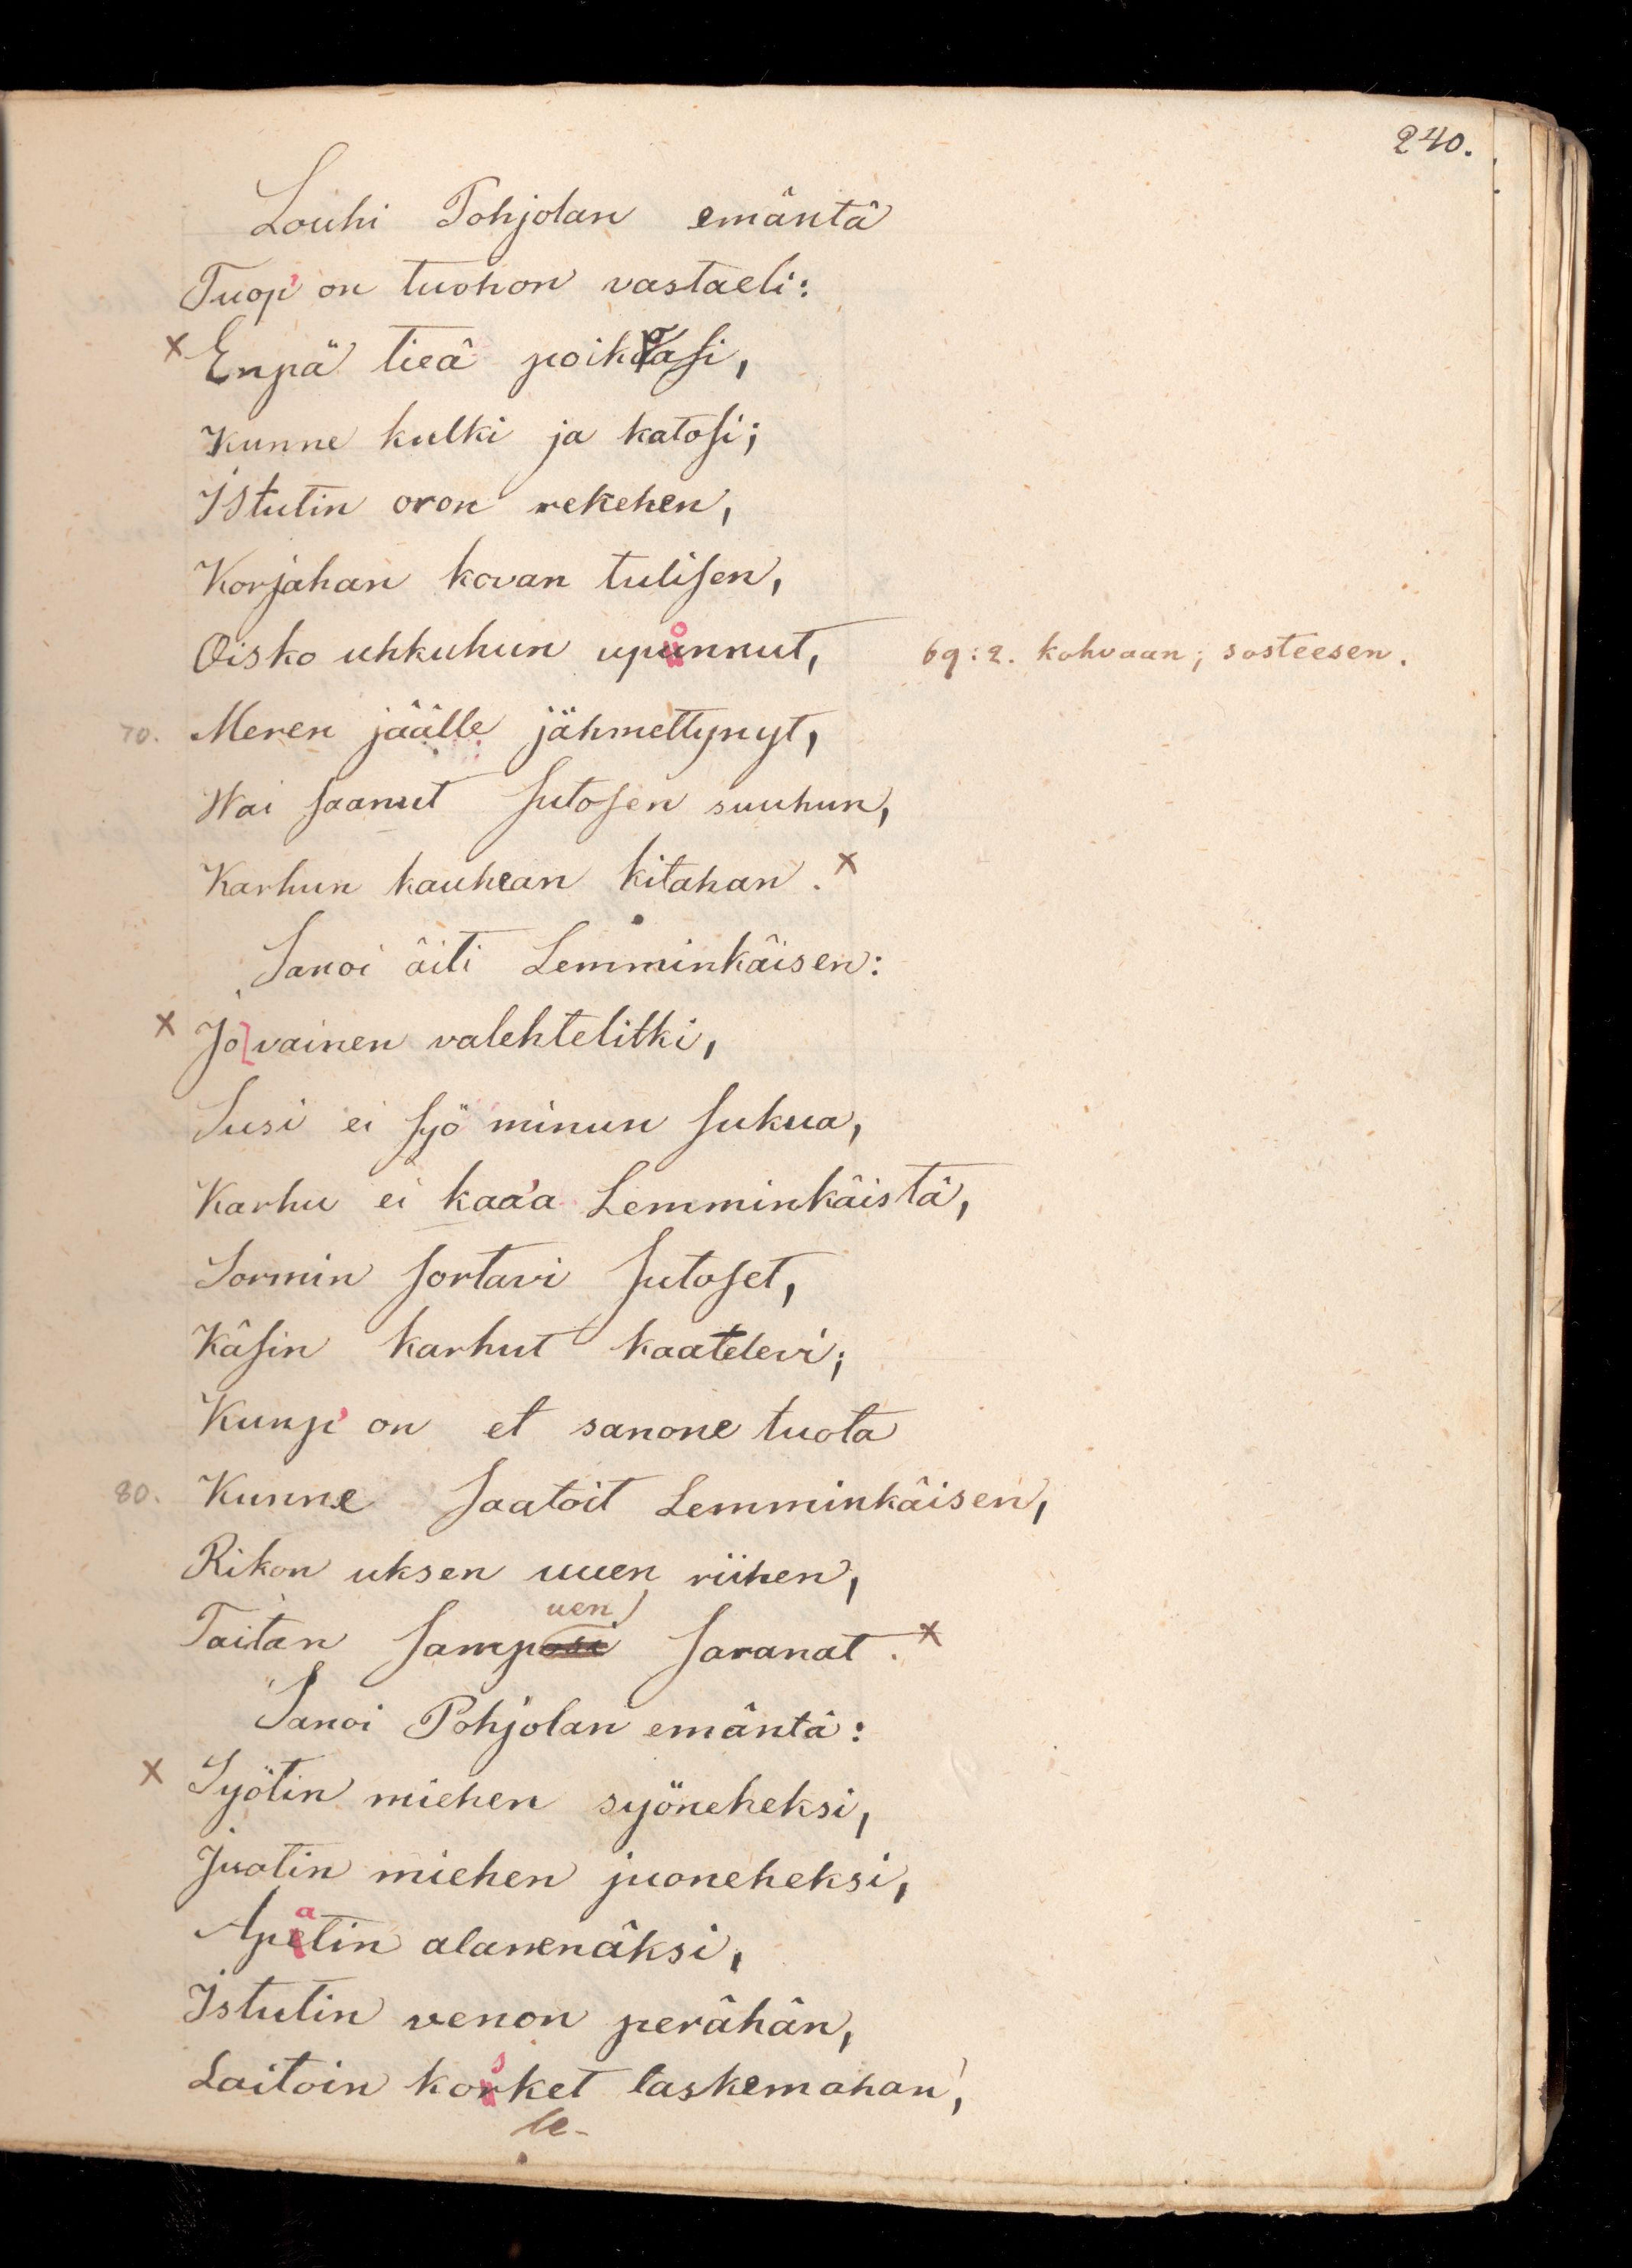 240.
Louhi Pohjolan emäntä
Tuop' on tuohon vastaeli:
x Enpä tieä poikoasi,
Kunne kulki ja katosi;
Istutin oron rekehen,
Korjahan kovan tulisen,
Oisko uhkuhun uponnut, 69:2. kohvaan; sosteesen.
70. Meren jäälle jähmettynyt,
Wai saanut sutosen suuhun,
Karhun kauhean kitahan. x
Sanoi äiti Lemminkäisen:
x Jo vainen valehtelitki,
Susi ei syö minun sukua,
Karhu ei kaa'a Lemminkäistä,
Sormin sortavi sutoset,
Käsin karhut kaatelevi;
Kunp' on et sanone tuota
80. Kunne saatoit Lemminkäisen,
Rikon uksen uuen riihen,
uen
Taitan samposi saranat. x
Sanoi Pohjolan emäntä:
x Syötin miehen syöneheksi,
Juotin miehen juoneheksi,
a
Apetin alanenäksi,
Istutin venon perähän,
s
Laitoin korket laskemahan,
le-